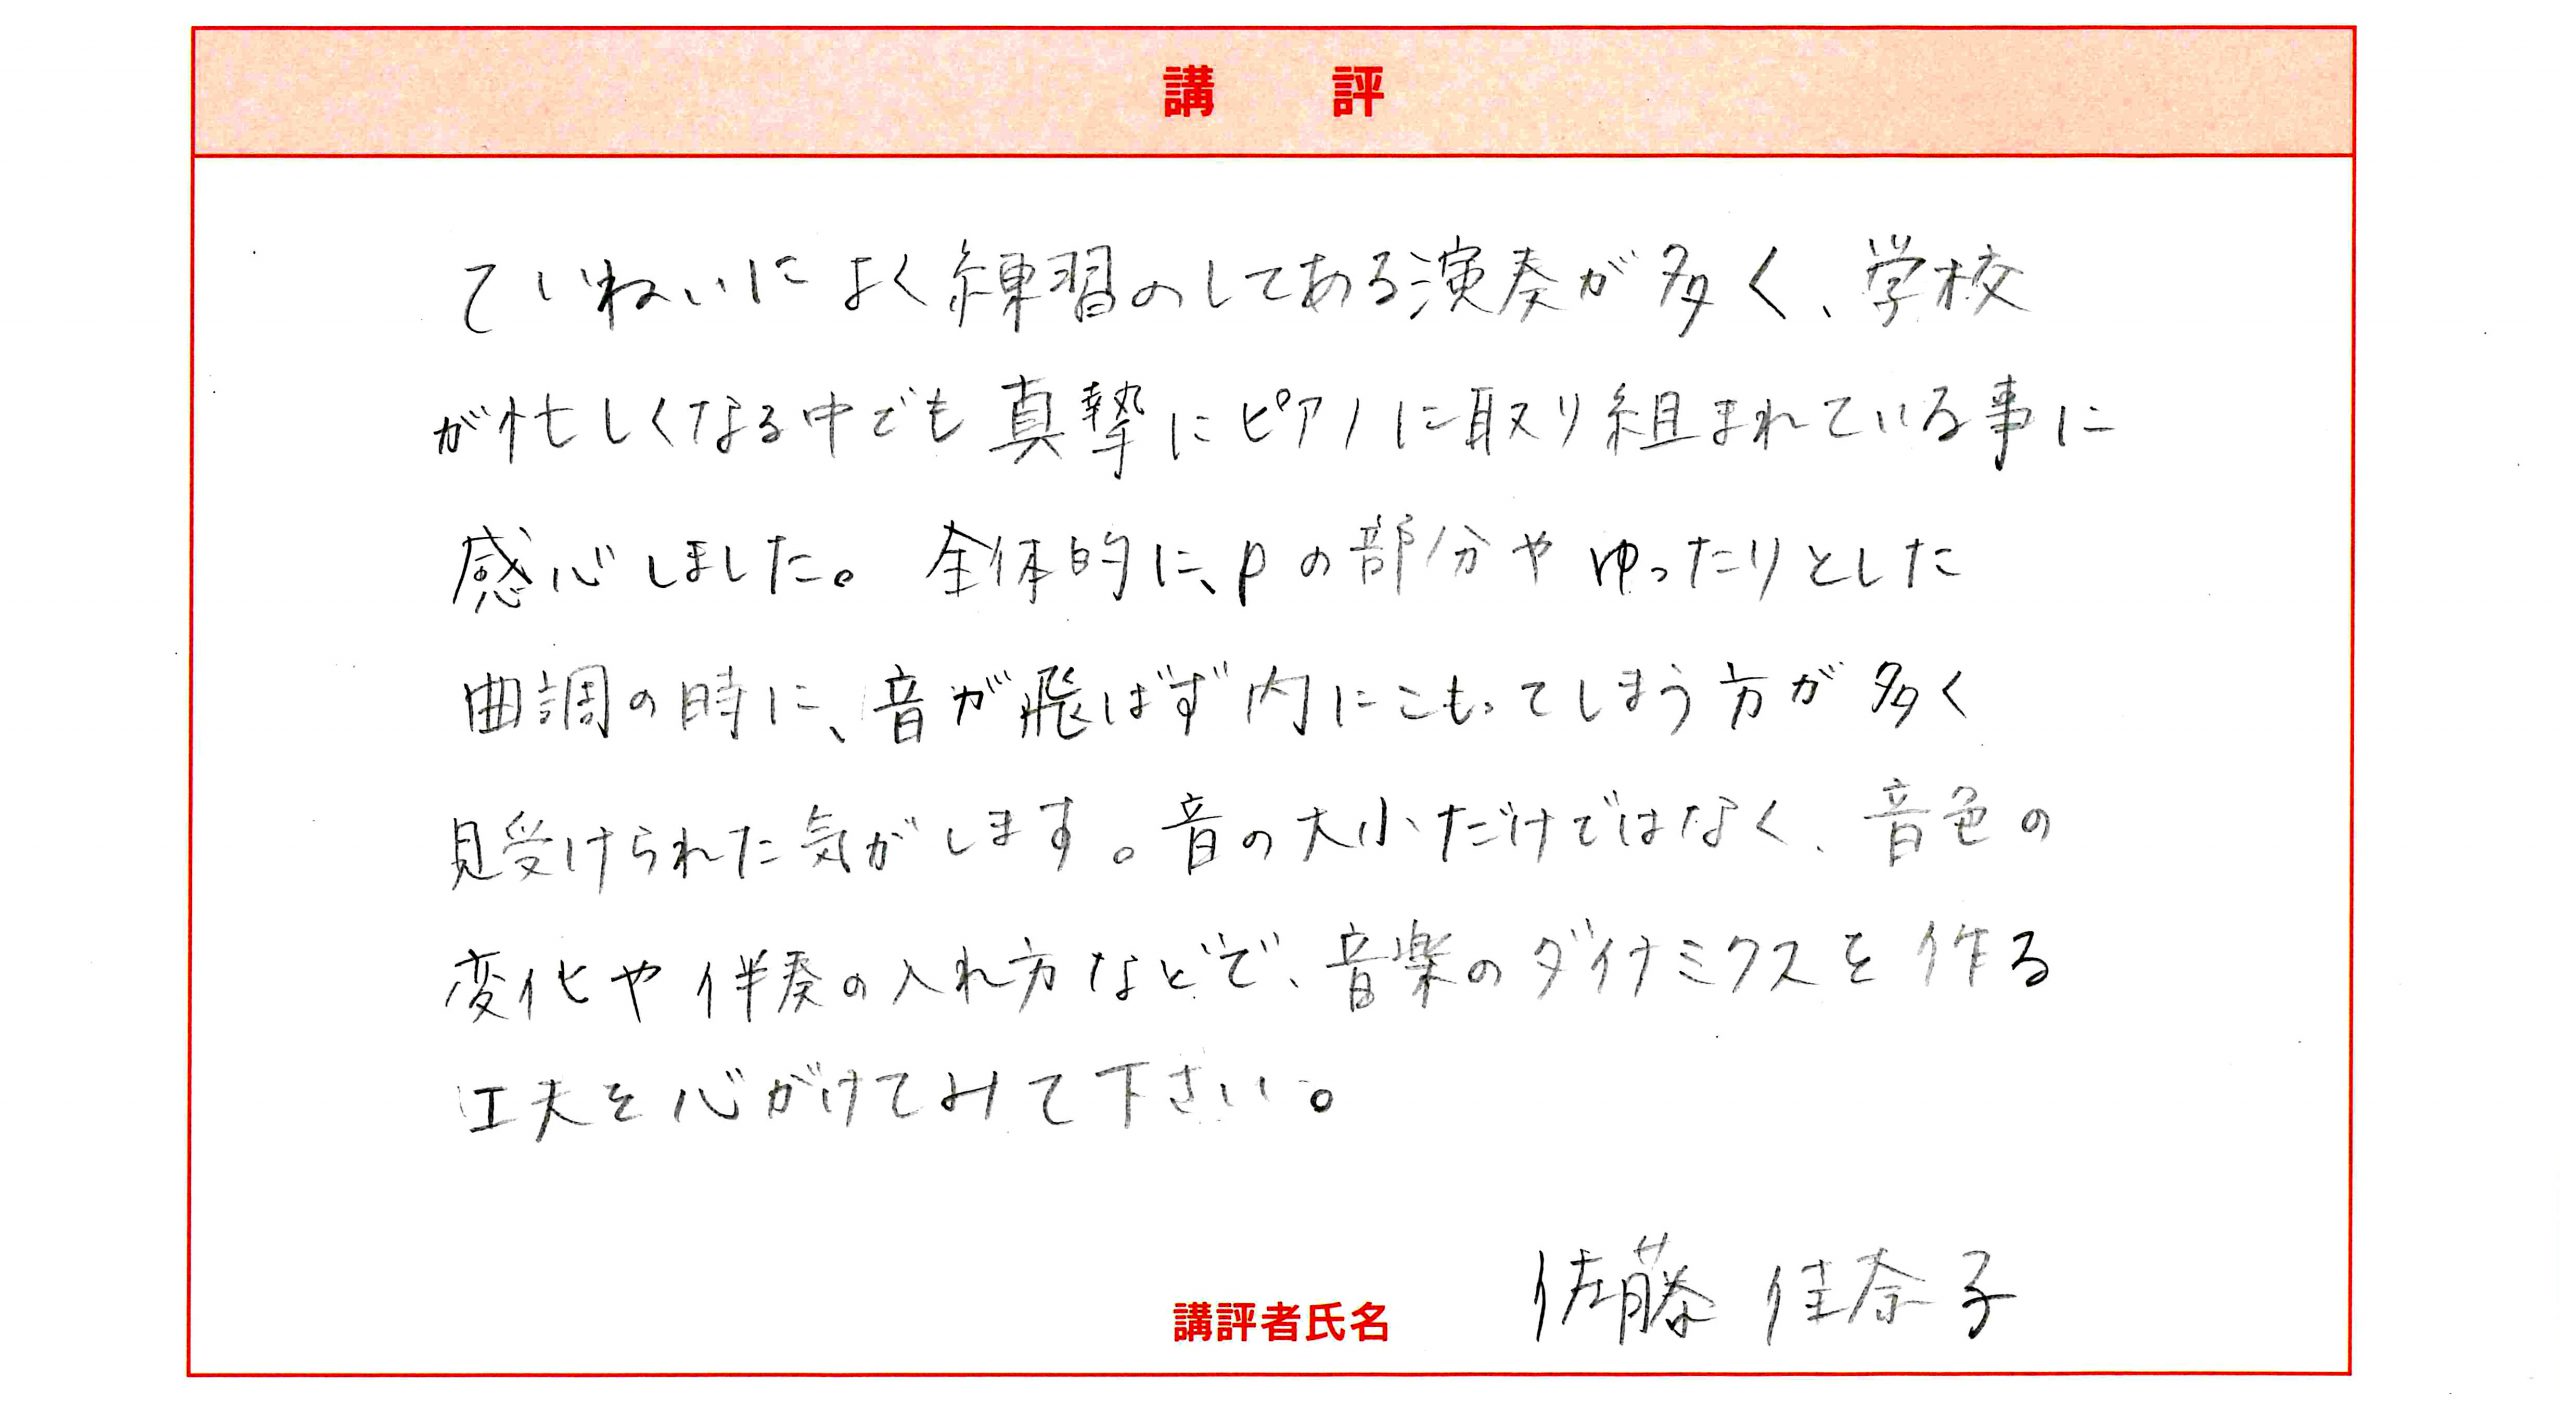 講　評
ていねいによく練習のしてある演奏が多く、学校
が忙しくなる中でも真摯にピアノに取り組まれている事に
感心しました。全体的に、pの部分やゆったりとした
曲調の時に、音が飛ばず内にこもってしまう方が多く
見受けられた気がします。音の大小だけではなく、音色の
変化や伴奏の入れ方などで、音楽のダイナミクスを作る
工夫を心がけてみて下さい。
講評者氏名　佐藤 佳奈子